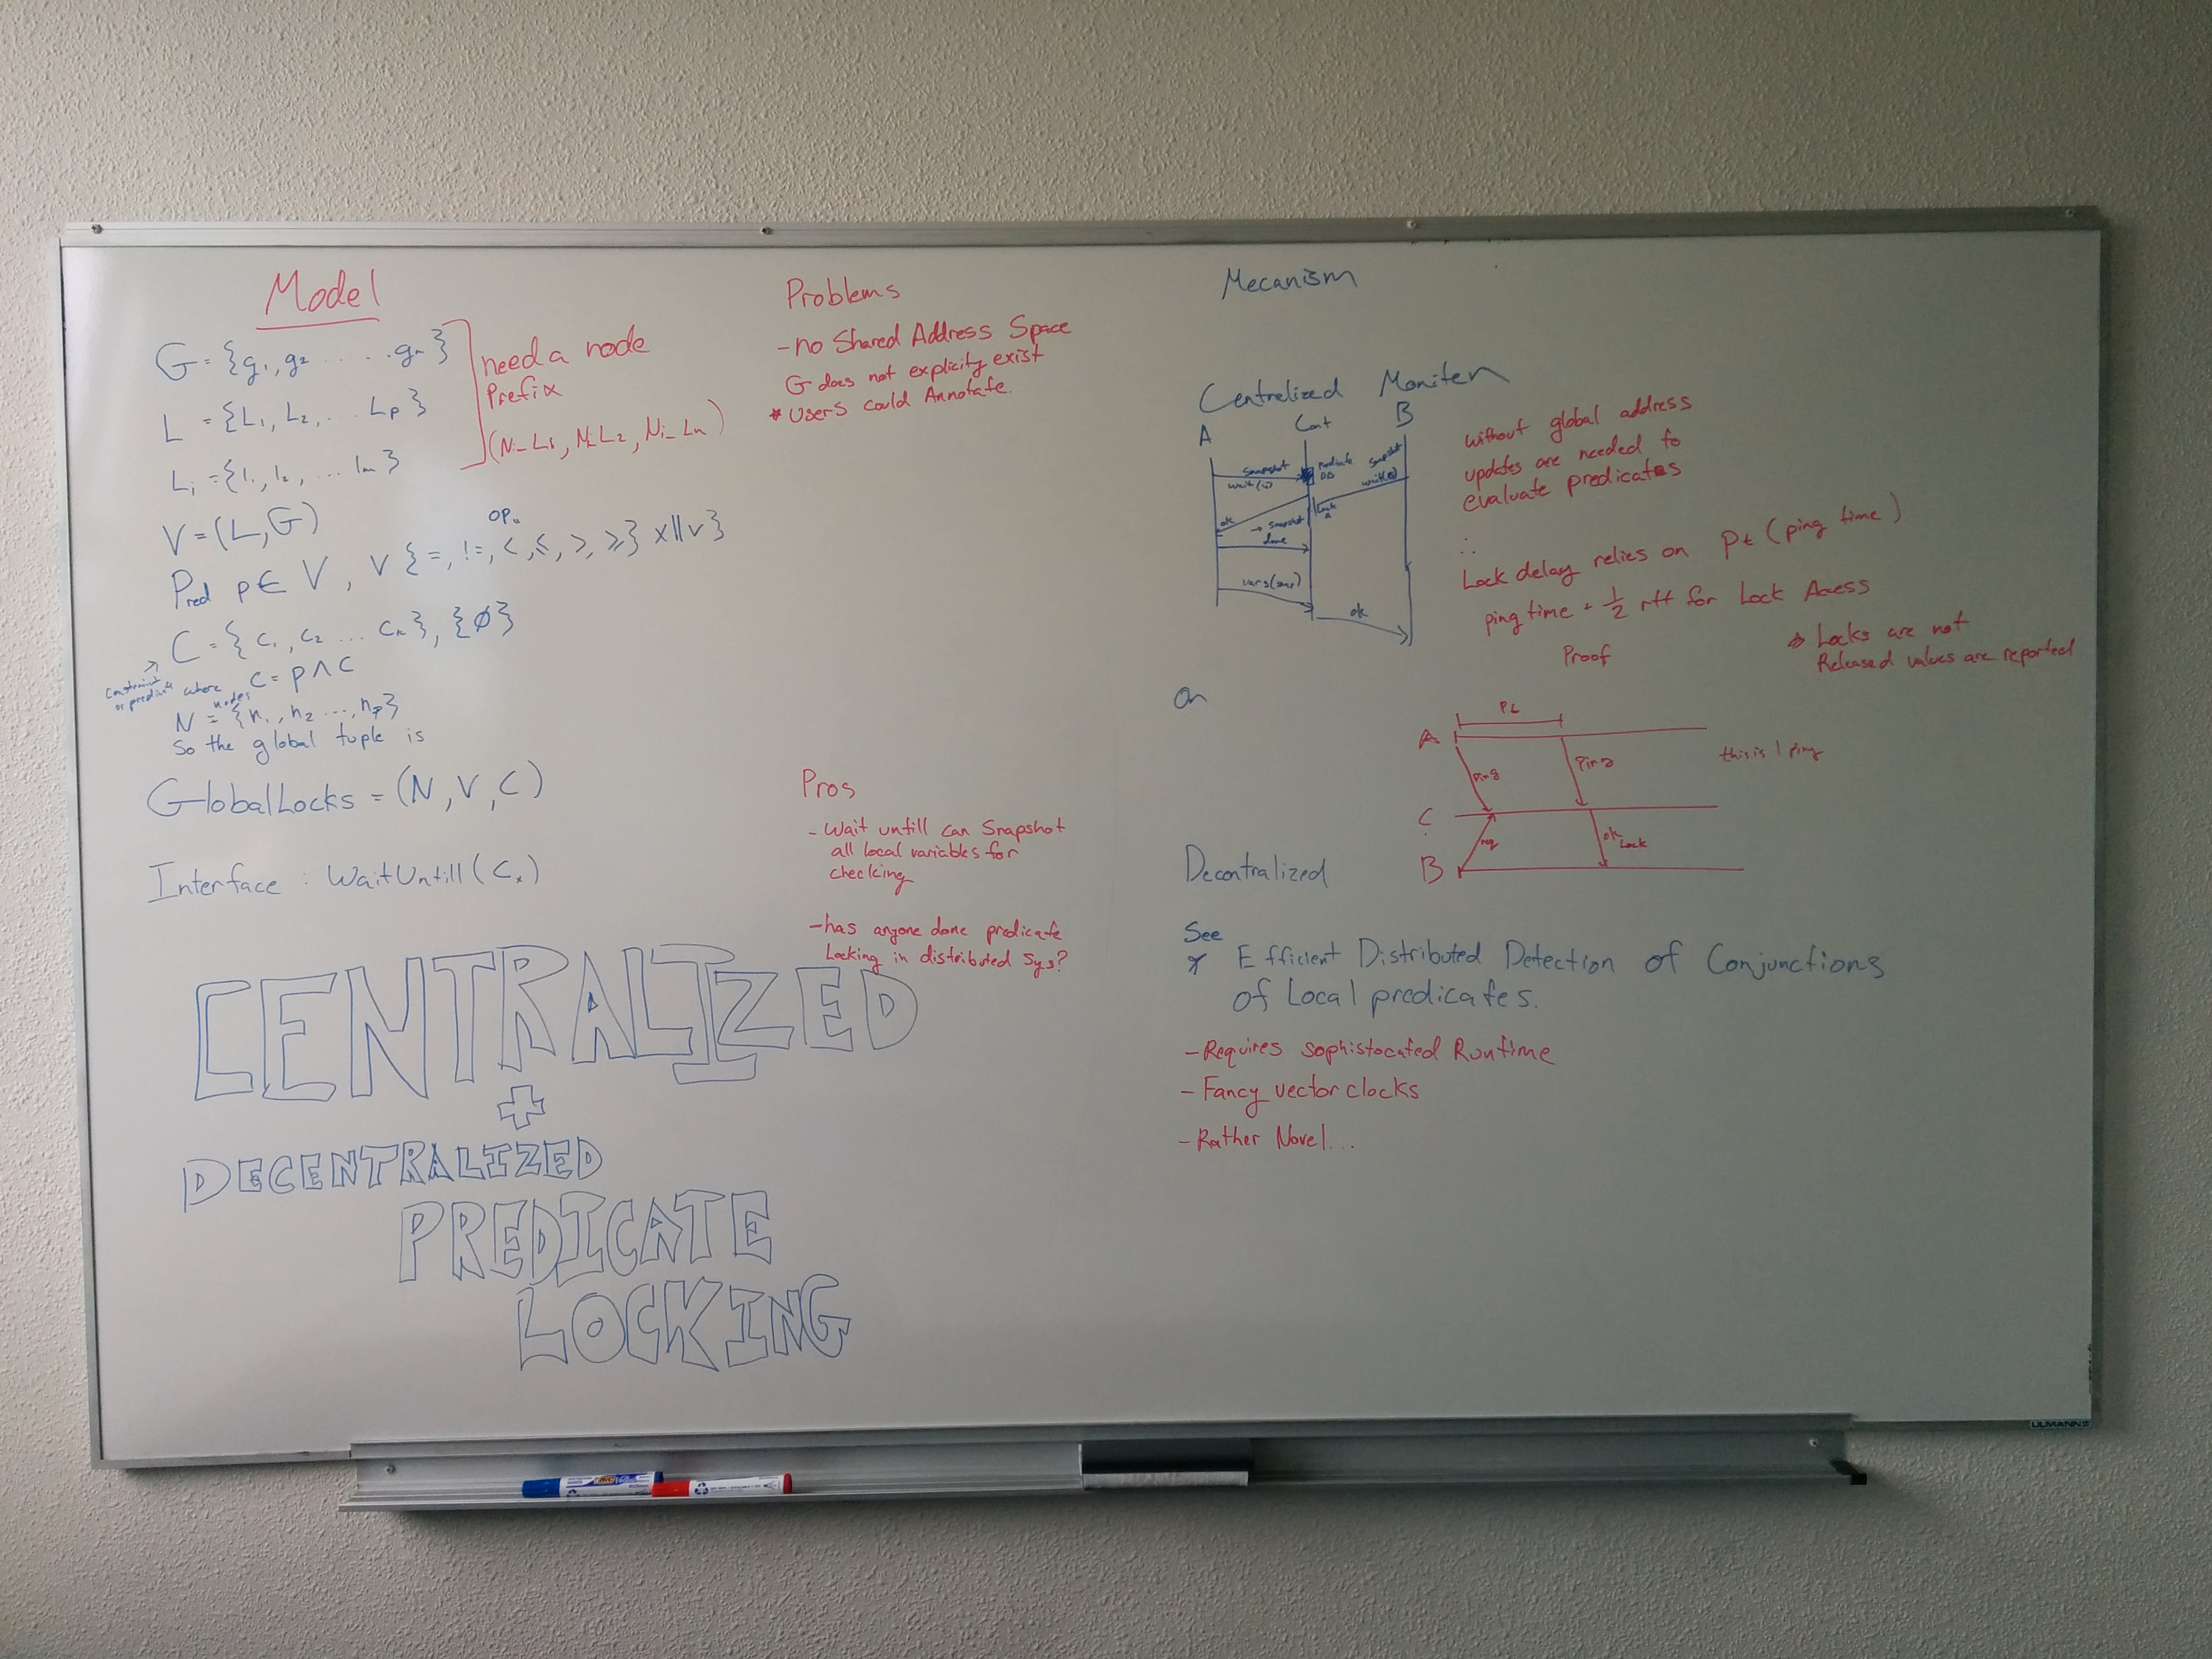 Model
G = {g1, g2 ...... gn}
L = {L1, L2, ... Lp}
Li = {l1, l2, ... lm}
need a node
Prefix
(Ni_L1, Ni_L2, Ni_Ln)
V = (L, G)
opn
Pred p ∈ V, V {=, !=, <, ≤, >, ≥} x||v}
C = {c1, c2 ... cn}, {∅}
constraint
or predicate
where C = p ∧ c
nodes
N = {n1, n2 ..., np}
So the global tuple is
GlobalLocks = (N, V, C)
Interface : WaitUntill(Cx)
CENTRALIZED
+
DECENTRALIZED
PREDICATE
LOCKING
Problems
- no Shared Address Space
G does not explicity exist
* Users could Annotate.
Pros
- Wait untill can Snapshot
all local variables for
checking
- has anyone done predicate
Locking in distributed Sys?
Mecanism
Centrelized Moniter
A
Cont
B
Snapshot
wait(
predicate
DB
Snapshot
wait(
ok
Lock
→ Snapshot
done
vars(
ok
without global address
updates are needed to
evaluate predicates
∴
Lock delay relies on Pt (ping time)
ping time + 1/2 rtt for Lock Access
Proof
⇒ Locks are not
Released values are reported
Or
Pt
A
ping
Ping
this is 1 ping
C
req
ok
Lock
B
Decontralized
See
* Efficient Distributed Detection of Conjunctions
of Local predicates.
- Requires sophistocated Runtime
- Fancy vector clocks
- Rather Novel...
ULMANN